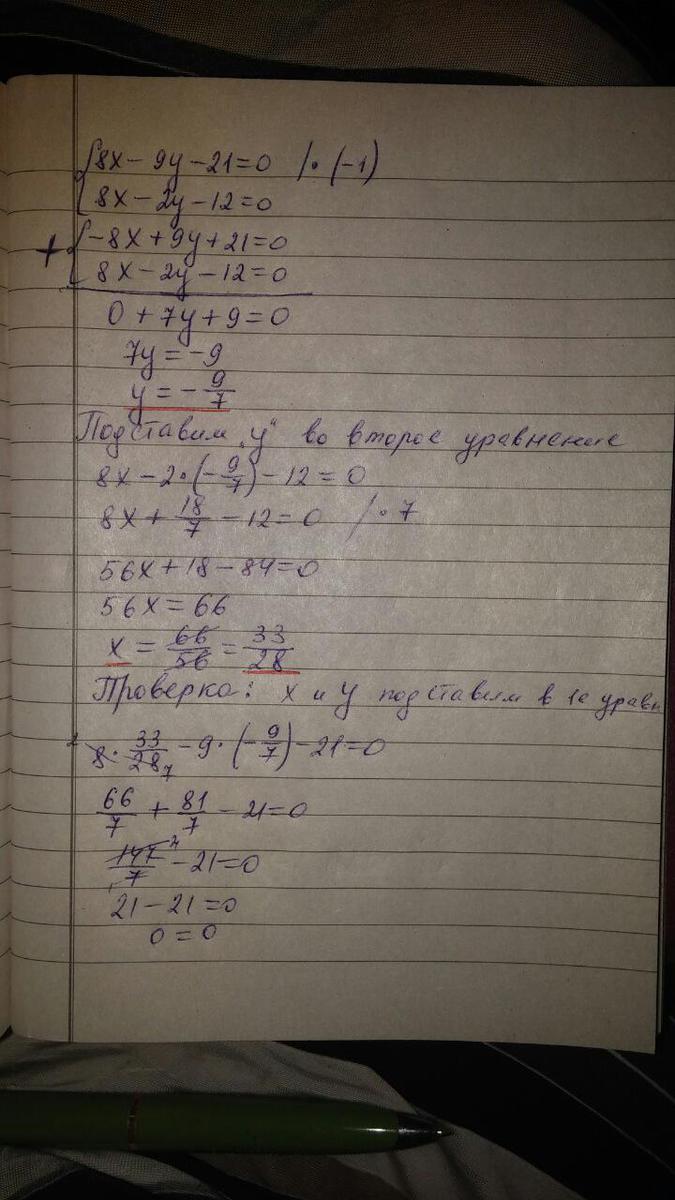 {8x - 9y - 21 = 0 /· (-1)
8x - 2y - 12 = 0
+ {-8x + 9y + 21 = 0
8x - 2y - 12 = 0
0 + 7y + 9 = 0
7y = -9
y = - 9/7
Подставим „y" во второе уравнение
8x - 2 · (- 9/7) - 12 = 0
8x + 18/7 - 12 = 0 /· 7
56x + 18 - 84 = 0
56x = 66
x = 66/56 = 33/28
Проверка: x и y подставим в 1е уравн
2 8 · 33/28 7 - 9 · (- 9/7) - 21 = 0
66/7 + 81/7 - 21 = 0
147/7 - 21 = 0
21 - 21 = 0
0 = 0